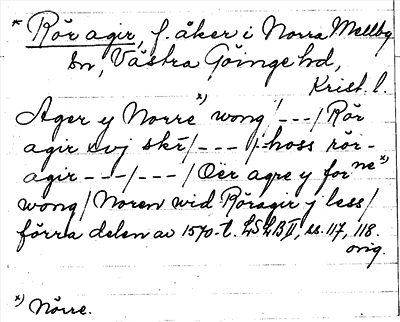 * Rör agir, f. åker i Norra Mellby
sn, Västra Göinge hd,
Krist. l.
Ager y Norre *) wong /---/ Rör
agir xvj skr /---/ hoss rör-
agir ---/---/ Oer agre y for ne *)
wong / Noren wid Röragir y less /
förra delen av 1570-t. LSLB II, ss. 117, 118.
orig.
*) Nörre.